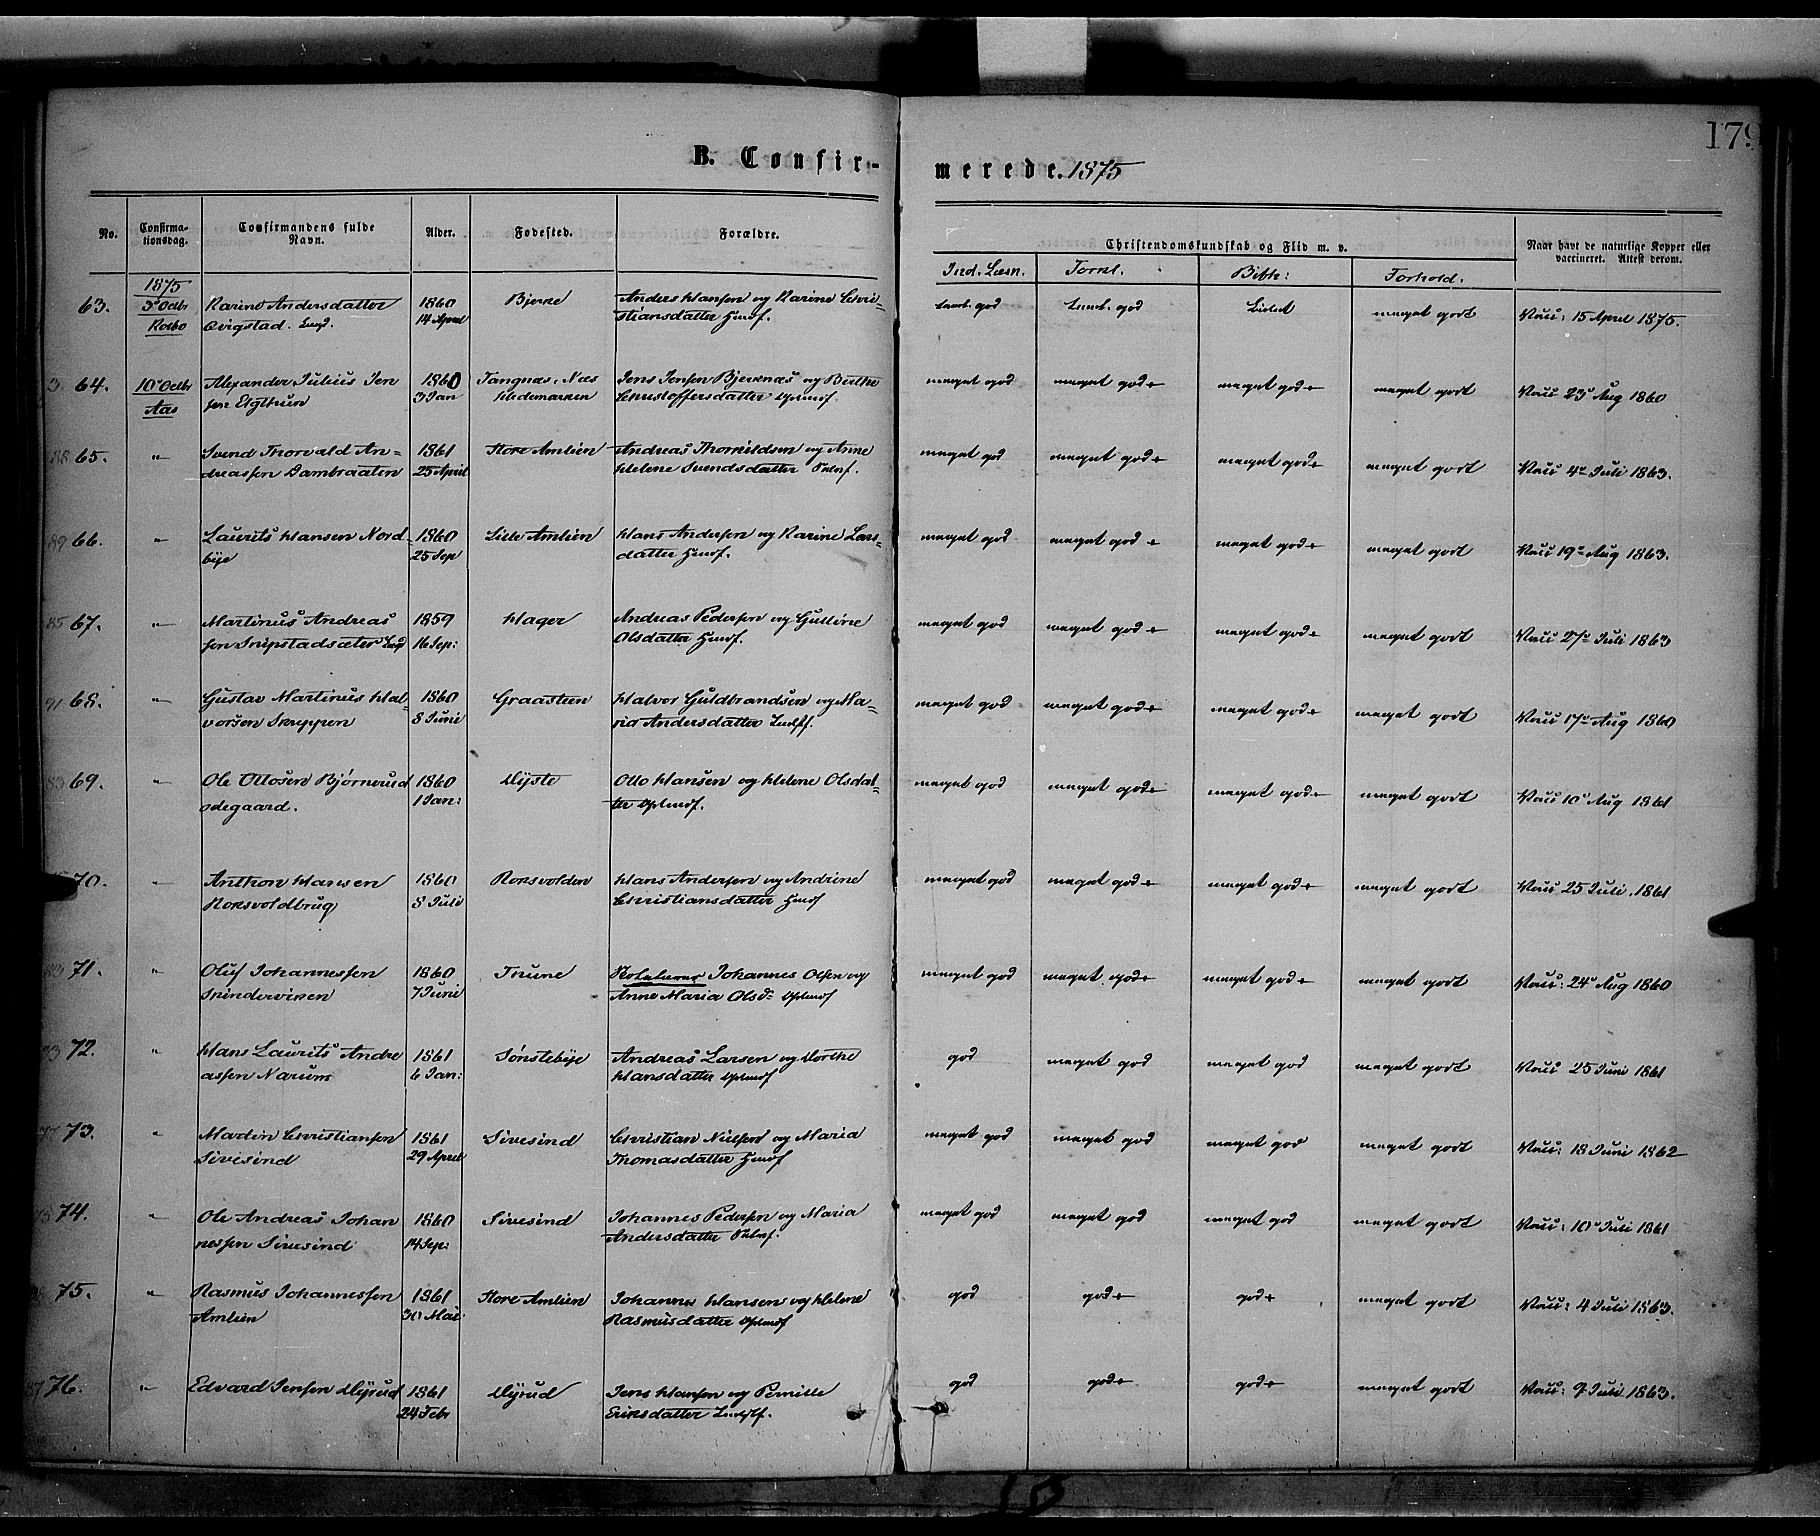 179
B. Confir-
merede. 1875
No.
Confirma-
tionsdag.
Confirmandens fulde
Navn.
Alder.
Fødested.
Forældre.
Christendomskundskab og Flid m. v.
Naar havt de naturlige Kopper eller
vaccineret. Attest derom.
Ind. Læsn.
Forkl.
Bibh:
Forhold.
1875
63. 3d Octbr Karine Andersdatter 1860 Bjerke Anders Hansen og Karine Chri- god god meget godt Vacc: 15 April 1875.
Kolbo Qvigstad. 14 April stiansdatter Huusf.
64. 10d Octbr Alexander Julius Jen 1860 Tangnæs, Næs Jens Jensen Bjerknæs og Berthe meget god meget god+ meget god+ meget godt Vacc 23d Aug 1860
Aas sen Elgthun 3 Jan Hedemarken Christoffersdatter
65. " Svend Thorvald An= 1861 Store Amlien Andreas Thorkildsen og Anne meget god meget god+ meget god+ meget godt Vacc 4de Juli 1863.
dreassen Dambraaten 25 April Helene Svendsdatter
66. " Laurits Hansen Nord= 1860 Lille Amlien Hans Andersen og Karine Lars= meget god meget god+ meget god+ meget godt Vacc 19de Aug 1863.
bye 25 Sep datter Huusf.
67. " Martinus Andreas 1859 Hager Andreas Pedersen og Gulline meget god meget god+ meget god+ meget godt Vacc 27de Juli 1863
sen Snipstadsæter 16 Sep: Olsdatter Huusf.
68. " Gustav Martinus Hal= 1860 Graasteen Halvor Guldbrandsen og Ma= meget god meget god+ meget god+ meget godt Vacc 17de Aug 1860
vorsen Skryppen 8 Juni ria Andersdatter
69. " Ole Ottosen Bjørnerud 1860 Dyste Otto Hansen og Helene Olsdat= meget god meget god+ meget god+ meget godt Vacc 10d Aug 1861
ødegaard. 1 Jan: ter
70. " Anthon Hansen 1860 Roksvolden Hans Andersen og Andrine meget god meget god+ meget god+ meget godt Vacc 25 Juli 1861
Roksvoldbrug 8 Juli Christiansdatter Huusf
71. " Oluf Johannessen 1860 Thune Skolelærer Johannes Olsen og meget god meget god+ meget god+ meget godt Vacc: 24d Aug 1860
Skinderviken 7 Juni Anne Maria Olsd:
72. " Hans Laurits Andre 1861 Sønstebye Andreas Larsen og Dorthe god meget god meget god meget godt Vacc 25 Juni 1861
assen Narum 6 Jan: Hansdatter
73. " Martin Christiansen 1861 Sivesind Christian Nielsen og Maria meget god meget god meget god meget godt Vacc: 18 Juni 1862
Sivesind 29 April Thomasdatter Huusf
74. " Ole Andreas Johan 1860 Sivesind Johannes Pedersen og Maria meget god meget god meget god meget godt Vacc: 10d Juli 1861
nessen Sivesind 14 Sep: Andersdatter
75. " Rasmus Johannessen 1861 Store Amlien Johannes Hansen og Helene god god+ god+ meget godt Vacc: 4 Juli 1863.
Amlien 30 Mai Rasmusdatter
76. " Edvard Jensen Dyrud 1861 Dyrud Jens Hansen og Pernille god god+ god+ meget godt Vacc: 9 Juli 1863.
24 Febr Eriksdatter